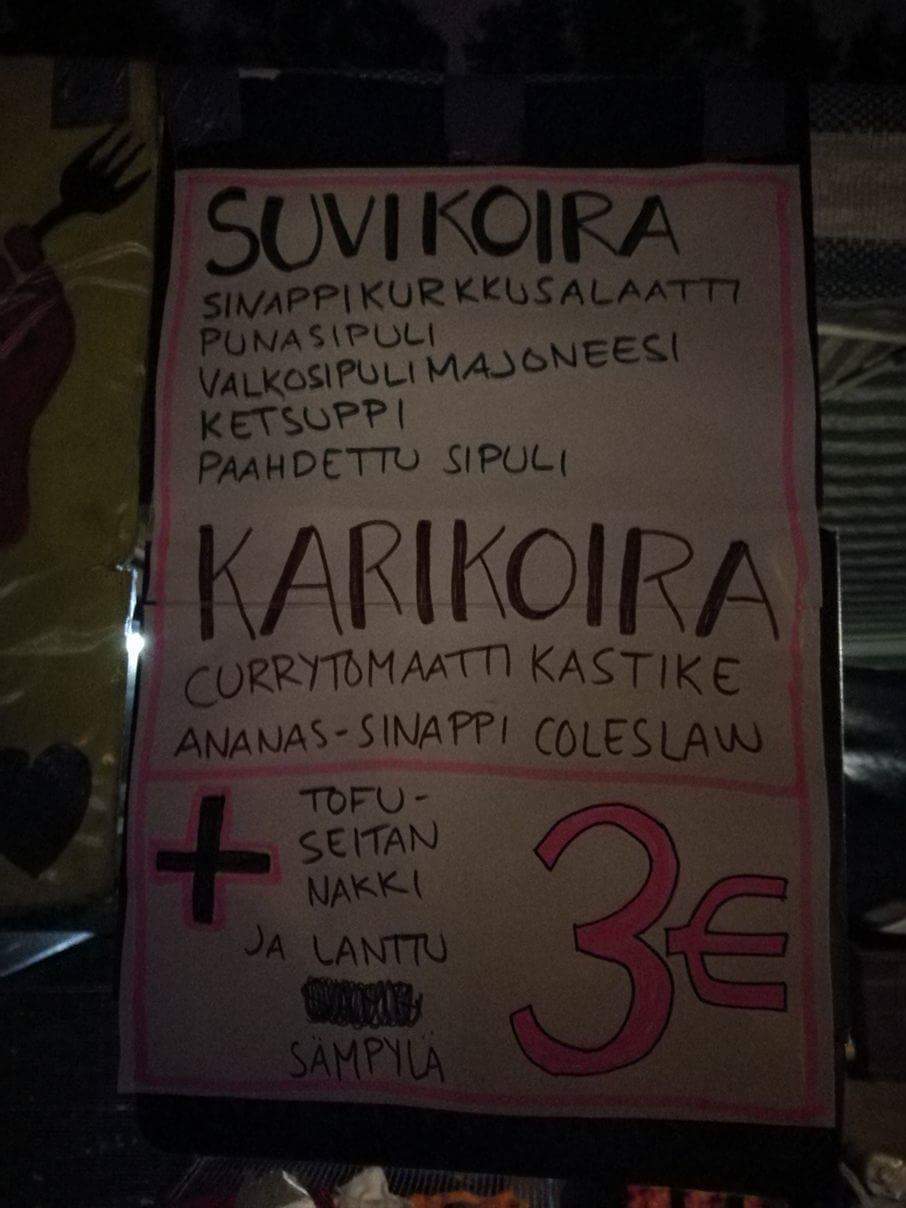 SUVIKOIRA
SINAPPIKURKKUSALAATTI
PUNASIPULI
VALKOSIPULIMAJONEESI
KETSUPPI
PAAHDETTU SIPULI
KARIKOIRA
CURRYTOMAATTI KASTIKE
ANANAS-SINAPPI COLESLAW
+ TOFU-
SEITAN
NAKKI
JA LANTTU
SÄMPYLÄ
3€